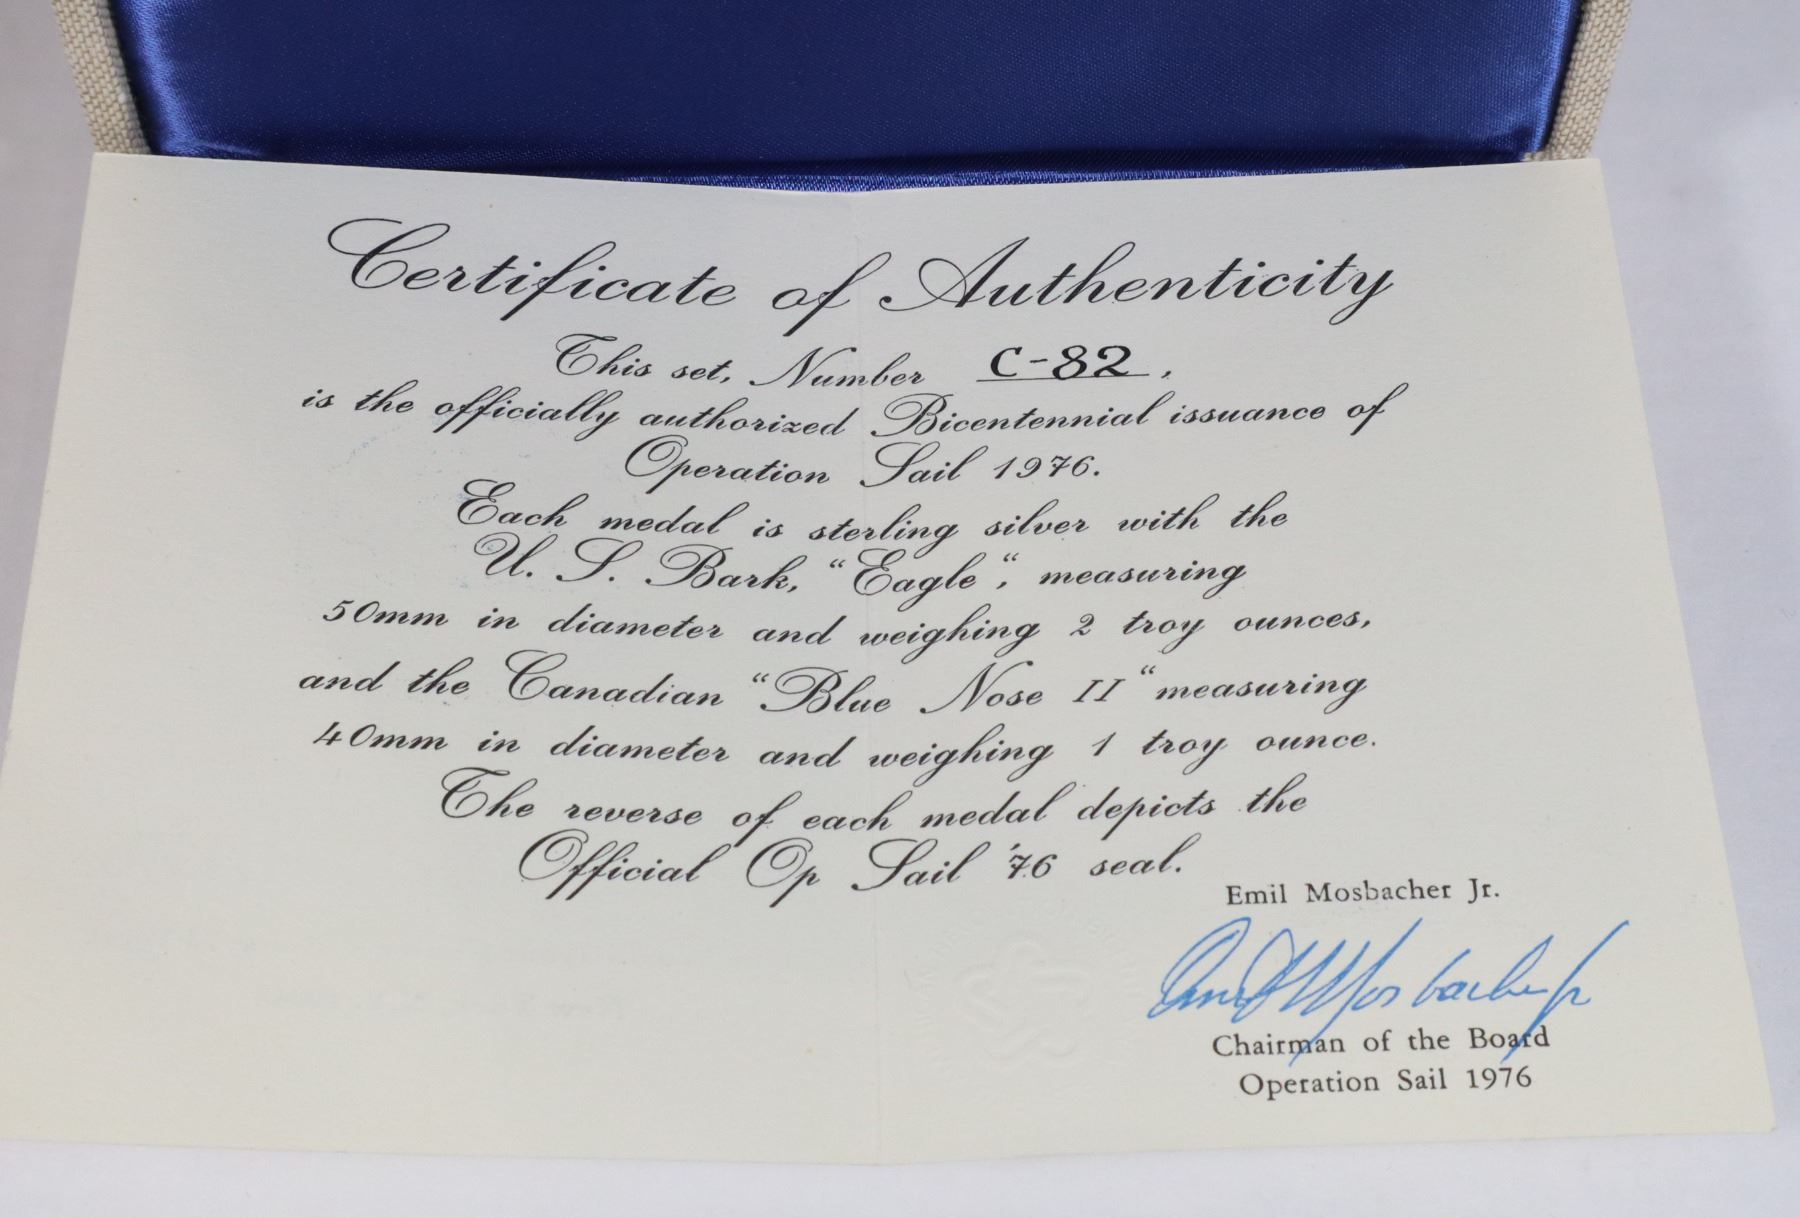 Certificate of Authenticity
This set, Number C-82,
is the officially authorized Bicentennial issuance of
Operation Sail 1976.
Each medal is sterling silver with the
U. S. Bark, “Eagle“, measuring
50mm in diameter and weighing 2 troy ounces,
and the Canadian “Blue Nose II“ measuring
40mm in diameter and weighing 1 troy ounce.
The reverse of each medal depicts the
Official Op Sail '76 seal.
Emil Mosbacher Jr.
Emil Mosbacher Jr
Chairman of the Board
Operation Sail 1976